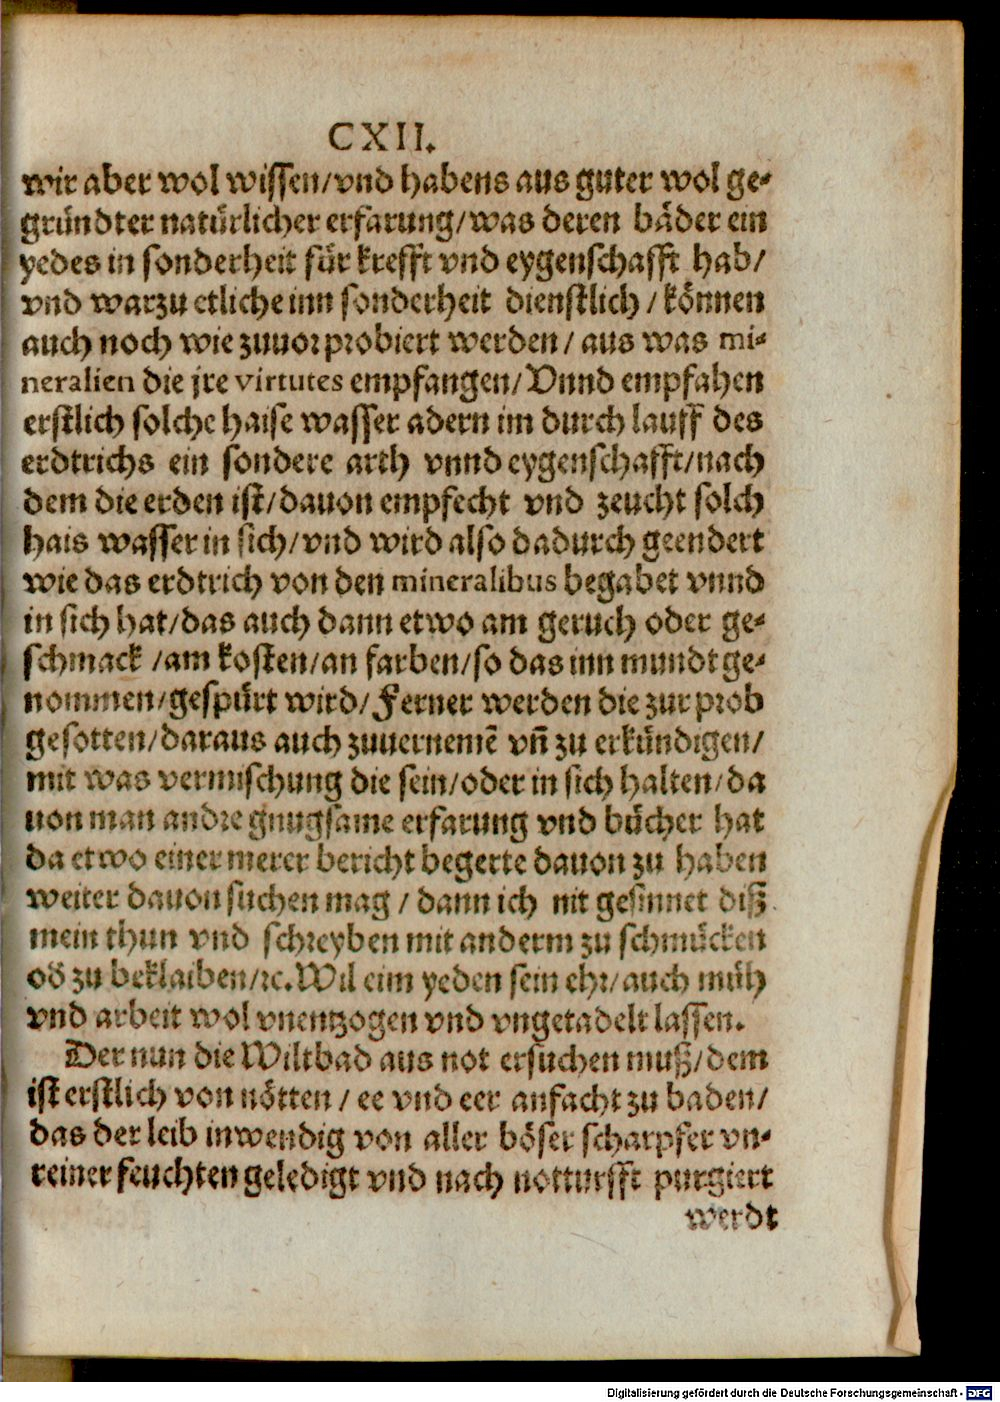 CXII.
wir aber wol wissen/vnd habens aus guter wol ge-
gründter natürlicher erfarung/was deren bäder ein
yedes in sonderheit für krefft vnd eygenschafft hab/
vnd warzu etliche inn sonderheit dienstlich / können
auch noch wie zuuor probiert werden / aus was mi-
neralien die jre virtutes empfangen/Vnnd empfahen
erstlich solche haise wasser adern im durch lauff des
erdtrichs ein sondere arth vnnd eygenschafft/nach
dem die erden ist/dauon empfecht vnd zeucht solch
hais wasser in sich/vnd wird also dadurch geendert
wie das erdtrich von den mineralibus begabet vnnd
in sich hat/das auch dann etwo am geruch oder ge-
schmack /am kosten/an farben/so das inn mundt ge-
nommen/gespürt wird/Ferner werden die zur prob
gesotten/daraus auch zuuernemē vn̄ zu erkündigen/
mit was vermischung die sein/oder in sich halten/da
uon man andre gnugsame erfarung vnd bücher hat
da etwo einer merer bericht begerte dauon zu haben
weiter dauon suchen mag / dann ich nit gesinnet diß
mein thun vnd schreyben mit anderm zu schmücken
oď zu beklaiben/ꝛc. Wil eim yeden sein ehr/auch müh
vnd arbeit wol vnentzogen vnd vngetadelt lassen.
Der nun die Wiltbad aus not ersuchen muß/dem
ist erstlich von nötten / ee vnd eer anfacht zu baden/
das der leib inwendig von aller böser scharpfer vn-
reiner feuchten geledigt vnd nach notturfft purgiert
werdt
Digitalisierung gefördert durch die Deutsche Forschungsgemeinschaft - DFG